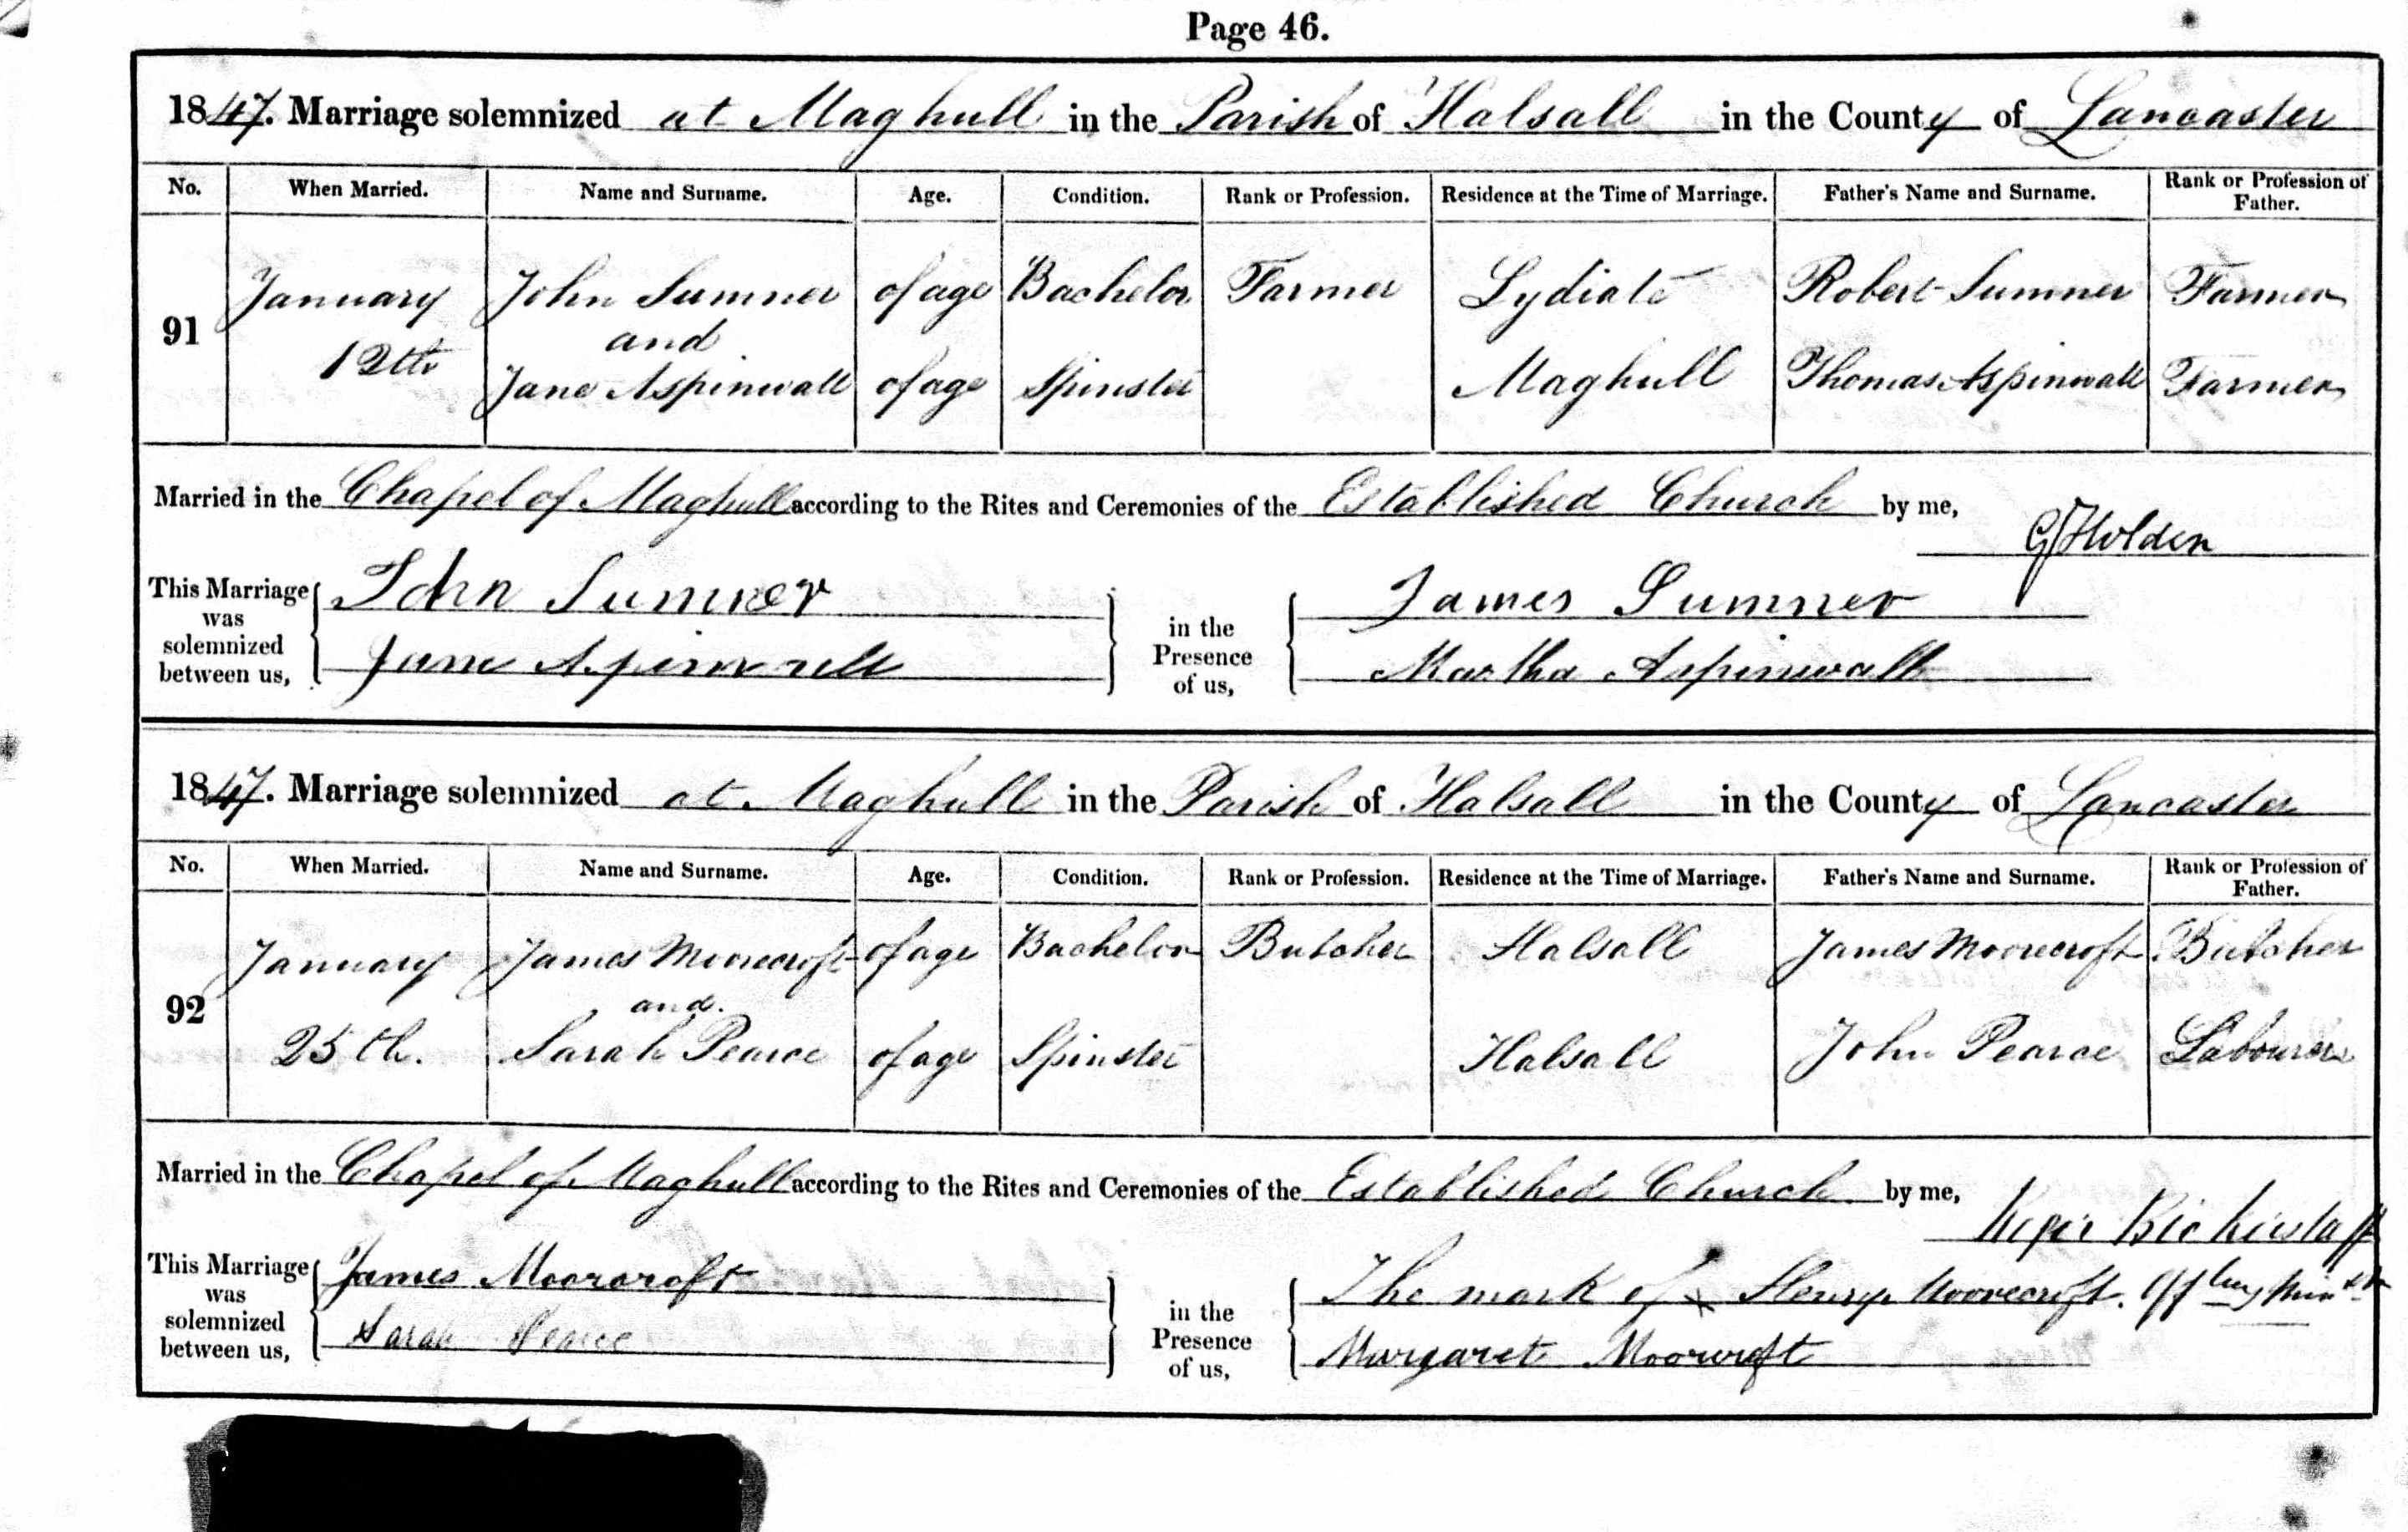 Page 46.
1847. Marriage solemnized at Maghull in the Parish of Halsall in the County of Lancaster
No. When Married. Name and Surname. Age. Condition. Rank or Profession. Residence at the Time of Marriage. Father's Name and Surname. Rank or Profession of Father.
January John Sumner of age Bachelor Farmer Lydiate Robert Sumner Farmer
91 and
12th Jane Aspinwall of age Spinster Maghull Thomas Aspinwall Farmer
Married in the Chapel of Maghull according to the Rites and Ceremonies of the Established Church by me,
G Holden
This Marriage was solemnized between us, John Sumner in the Presence of us, James Sumner
Jane Aspinwall Martha Aspinwall
1847. Marriage solemnized at Maghull in the Parish of Halsall in the County of Lancaster
No. When Married. Name and Surname. Age. Condition. Rank or Profession. Residence at the Time of Marriage. Father's Name and Surname. Rank or Profession of Father.
January James Moorecroft of age Bachelor Butcher Halsall James Moorecroft Butcher
92 and.
25th. Sarah Pearce of age Spinster Halsall John Pearce Labourer
Married in the Chapel of Maghull according to the Rites and Ceremonies of the Established Church by me,
Bickerstaff
This Marriage was solemnized between us, James Moorcroft in the Presence of us, The mark of x Henry Moorecroft.
Sarah Pearce Margaret Moorcroft